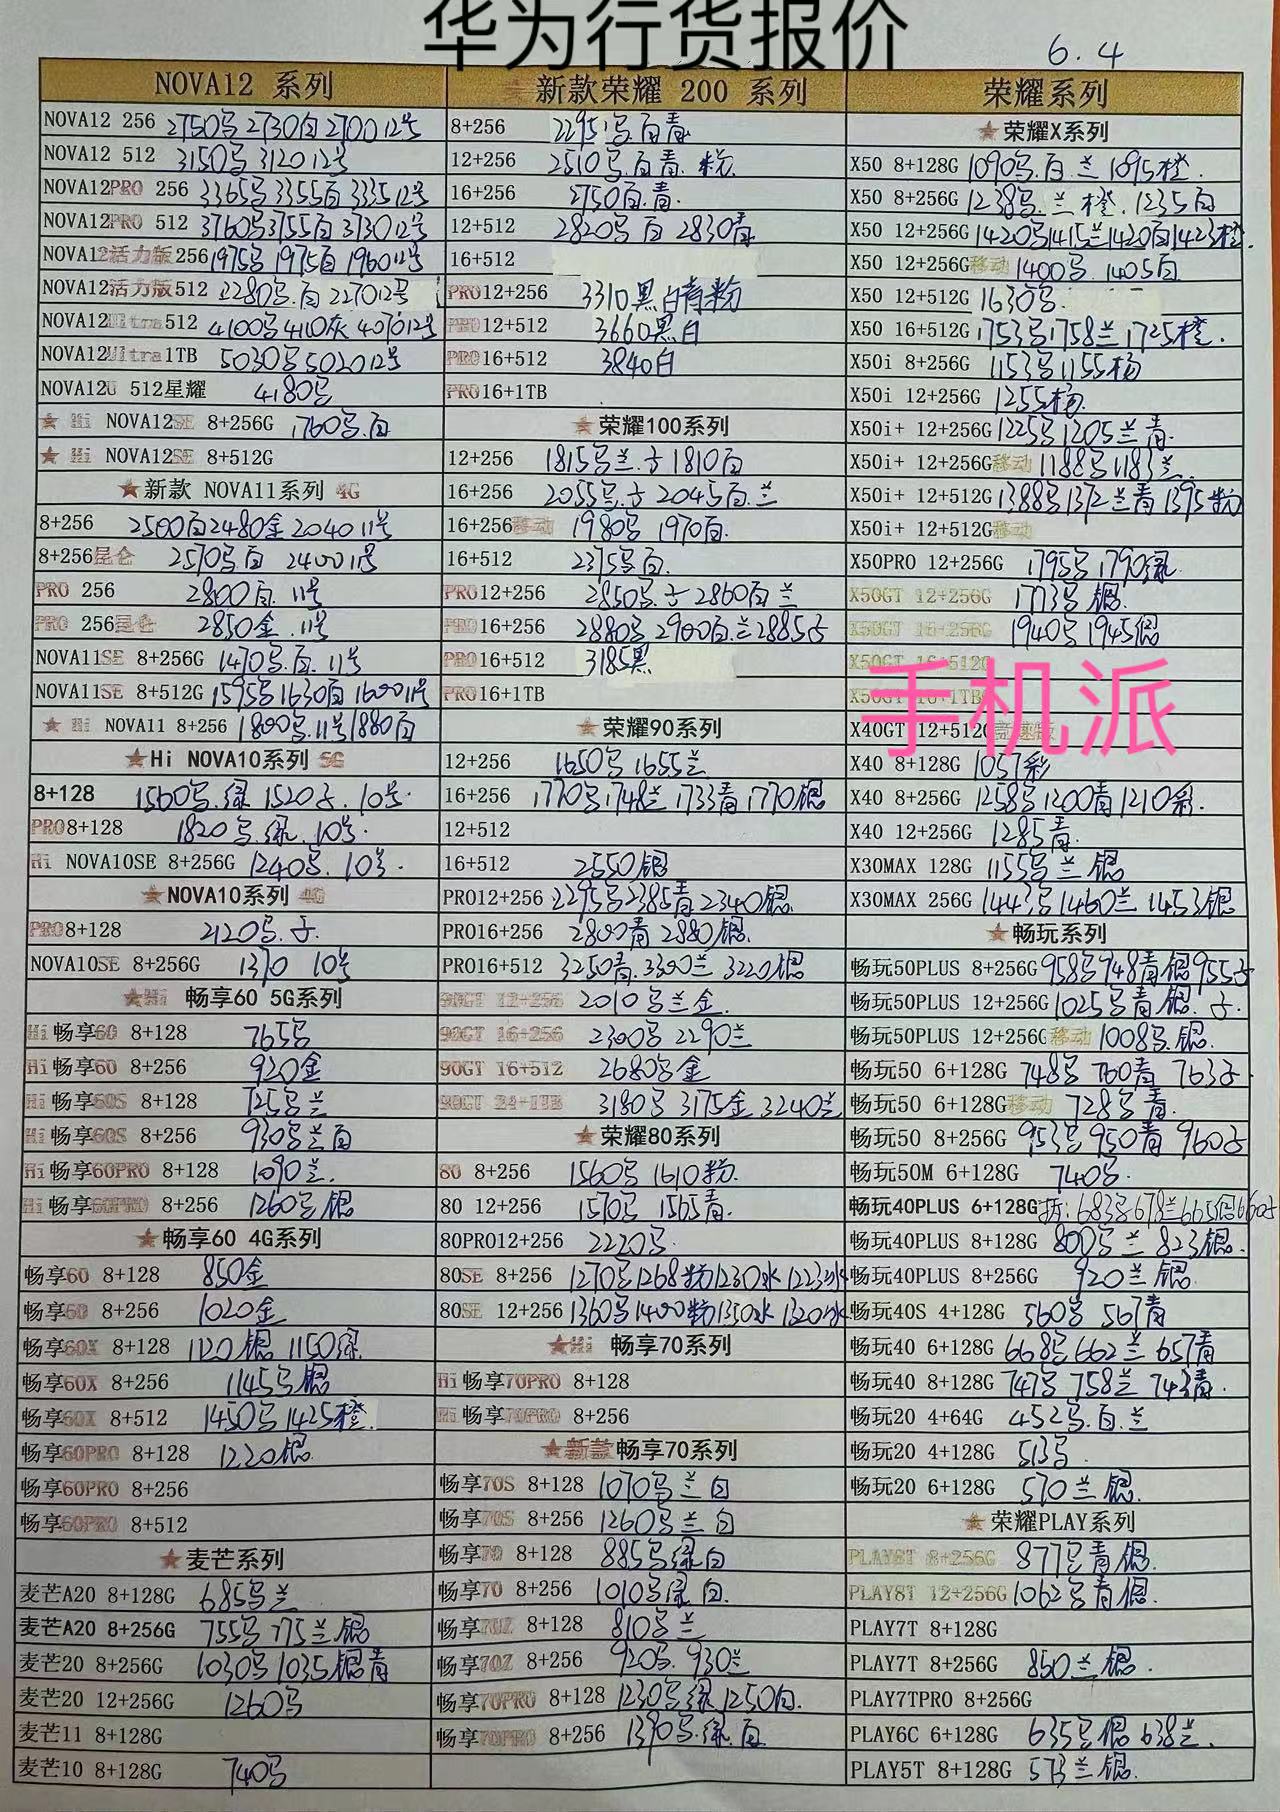 华为行货报价
6.4
NOVA12 系列
NOVA12 256 2750 2730白 2700 12号
NOVA12 512 3150 3120 12号
NOVA12PRO 256 3365 3355白 3335 12号
NOVA12PRO 512 3760 3755白 3730 12号
NOVA12活力版256 1975 1975白 1960 12号
NOVA12活力版512 2280 白 2270 12号
NOVA12Ultra512 4100 4110灰 4070 12号
NOVA12Ultra1TB 5030 5020 12号
NOVA12U 512星耀 4180
★ Hi NOVA12SE 8+256G 1760 白
★ Hi NOVA12SE 8+512G
★新款 NOVA11系列 4G
8+256 2500白 2480金 2040 11号
8+256昆仑 2570 白 2400 11号
PRO 256 2800白. 11号
PRO 256昆仑 2850金. 11号
NOVA11SE 8+256G 1470.白. 11号
NOVA11SE 8+512G 1595 1630白 1600 11号
★ Hi NOVA11 8+256 1800.11号 1880白
★Hi NOVA10系列 5G
8+128 1560.绿 1520 . 10号.
PRO8+128 1820.绿. 10号.
Hi NOVA10SE 8+256G 1240. 10号.
★NOVA10系列 4G
PRO8+128 2120.
NOVA10SE 8+256G 1370 10号
★Hi 畅享60 5G系列
Hi畅享60 8+128 765
Hi畅享60 8+256 920金
Hi畅享60S 8+128 725 兰
Hi畅享60S 8+256 930 兰白
Hi畅享60PRO 8+128 1090兰.
Hi畅享60PRO 8+256 1260 银
★畅享60 4G系列
畅享60 8+128 850金
畅享60 8+256 1020金
畅享60X 8+128 1120银 1150绿
畅享60X 8+256 1145 银
畅享60X 8+512 1450 1425橙.
畅享60PRO 8+128 1220银.
畅享60PRO 8+256
畅享60PRO 8+512
★麦芒系列
麦芒A20 8+128G 685 兰
麦芒A20 8+256G 755 775兰银
麦芒20 8+256G 1030 1035银青
麦芒20 12+256G 1260
麦芒11 8+128G
麦芒10 8+128G 740
★新款荣耀 200 系列
8+256 2295 白青
12+256 2510.白青.粉
16+256 2750白.青.
12+512 2820 白 2830青
16+512
PRO12+256 3310黑白青粉
PRO12+512 3660黑白
PRO16+512 3840白
PRO16+1TB
★荣耀100系列
12+256 1815 兰. 1810白
16+256 2055. 2045白.兰
16+256移动 1980 1970白.
16+512 2375 白.
PRO12+256 2850. 2860白兰
PRO16+256 2880 2900白.兰2885
PRO16+512 3185黑
PRO16+1TB
★荣耀90系列
12+256 1650 1655兰
16+256 1770 1748兰 1733青 1770银
12+512
16+512 2550银
PRO12+256 2295 2385青 2340银.
PRO16+256 2800青 2880银.
PRO16+512 3250青.3390兰 3220银
90GT 12+256 2010 兰金.
90GT 16+256 2300 2290兰
90GT 16+512 2680 金
90GT 24+1TB 3180 3175金 3240兰
★荣耀80系列
80 8+256 1560 1610粉.
80 12+256 1570 1565青.
80PRO12+256 2220.
80SE 8+256 1270 1268粉1230水 1223冰
80SE 12+256 1360 1400粉1350水 1320冰
★Hi 畅享70系列
Hi畅享70PRO 8+128
Hi畅享70PRO 8+256
★新款畅享70系列
畅享70S 8+128 1070 兰白
畅享70S 8+256 1260 兰白
畅享70 8+128 885 绿白
畅享70 8+256 1010 绿白.
畅享70Z 8+128 810 兰
畅享70Z 8+256 920. 930兰
畅享70PRO 8+128 1230 绿1250白.
畅享70PRO 8+256 1390.绿.白
荣耀系列
★荣耀X系列
X50 8+128G 1090.白.兰 1095橙.
X50 8+256G 1238.兰橙.1235白
X50 12+256G 1420 1415兰1420白1423橙.
X50 12+256G移动 1400. 1405白
X50 12+512G 1630.
X50 16+512G 1753 1758兰 1725橙.
X50i 8+256G 1153 1155杨
X50i 12+256G 1255杨.
X50i+ 12+256G 1225 1205兰青.
X50i+ 12+256G移动 1188 1183兰.
X50i+ 12+512G 1388 1372兰青 1395粉
X50i+ 12+512G移动
X50PRO 12+256G 1795 1790绿.
X50GT 12+256G 1773 银.
X50GT 16+256G 1940 1945银
X50GT 16+512G
手机派
X50GT 16+1TB
X40GT 12+512G竞速版
X40 8+128G 1057彩
X40 8+256G 1258 1200青1210彩.
X40 12+256G 1285青.
X30MAX 128G 1155 兰银
X30MAX 256G 1443 1460兰 1453银
★畅玩系列
畅玩50PLUS 8+256G 958 948青银955
畅玩50PLUS 12+256G 1025 青银.
畅玩50PLUS 12+256G移动 1008.银.
畅玩50 6+128G 748 760青 763
畅玩50 6+128G移动 728 青.
畅玩50 8+256G 953 950青 960
畅玩50M 6+128G 740.
畅玩40PLUS 6+128G 拆:683 678兰665银660
畅玩40PLUS 8+128G 800 兰 823银.
畅玩40PLUS 8+256G 920兰银
畅玩40S 4+128G 560 567青
畅玩40 6+128G 668 662兰 657青
畅玩40 8+128G 747 758兰 743青.
畅玩20 4+64G 452.白.兰
畅玩20 4+128G 513.
畅玩20 6+128G 570兰银.
★荣耀PLAY系列
PLAY8T 8+256G 877 青银.
PLAY8T 12+256G 1062 青银.
PLAY7T 8+128G
PLAY7T 8+256G 860兰银.
PLAY7TPRO 8+256G
PLAY6C 6+128G 635 银 638兰.
PLAY5T 8+128G 573兰银.